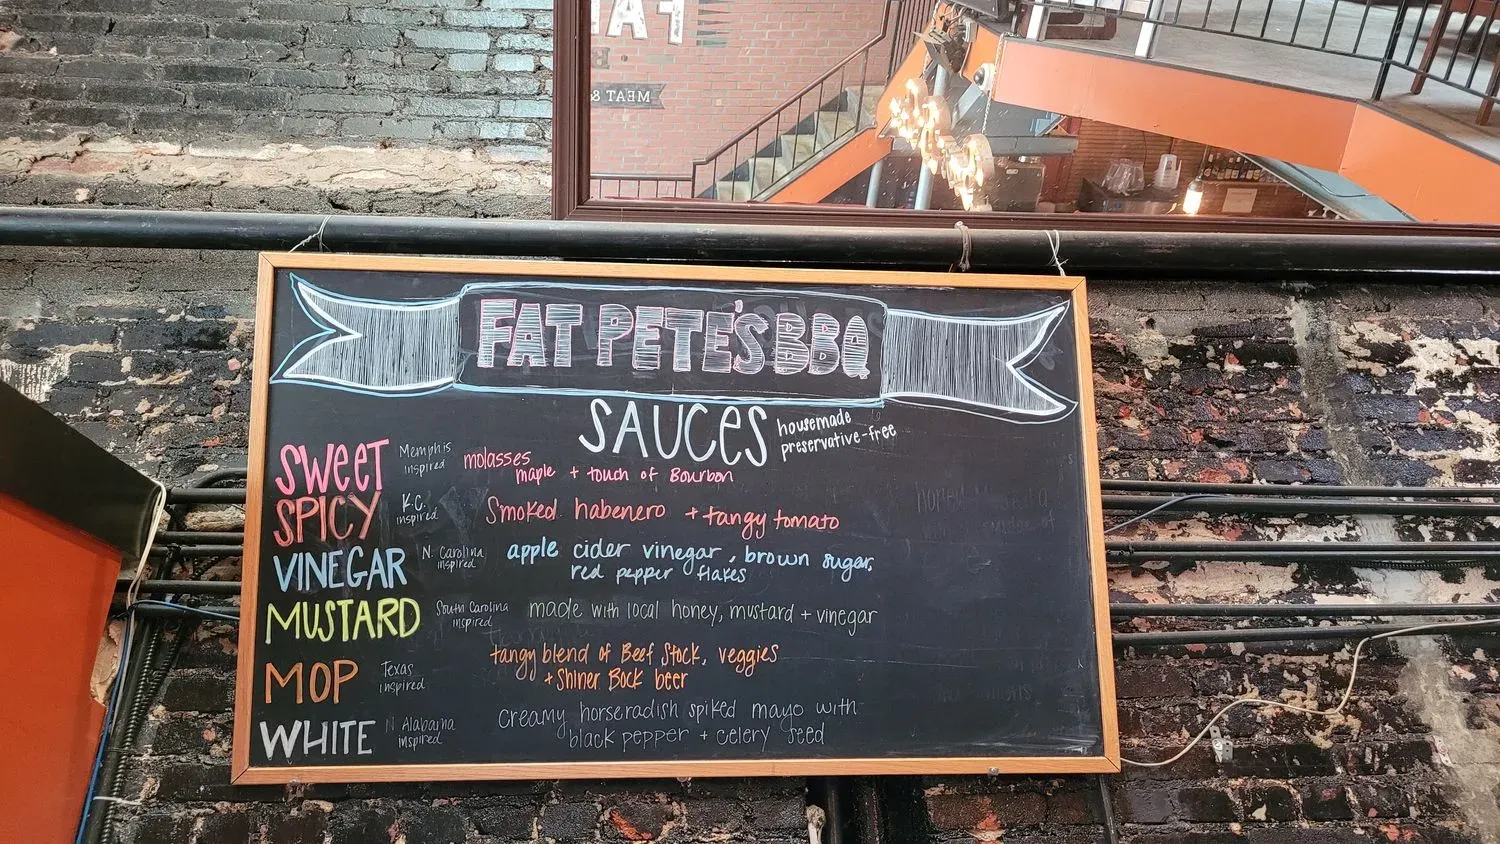 FA
MEAT &
FAT PETE'S BBQ
SAUCES housemade
preservative-free
SWEET Memphis inspired molasses
maple + touch of Bourbon
SPICY K.C. inspired Smoked habenero + tangy tomato
VINEGAR N. Carolina inspired apple cider vinegar, brown sugar,
red pepper flakes
MUSTARD South Carolina inspired made with local honey, mustard + vinegar
MOP Texas inspired tangy blend of Beef Stock, veggies
+ Shiner Bock beer
WHITE N Alabama inspired creamy horseradish spiked mayo with
black pepper + celery seed